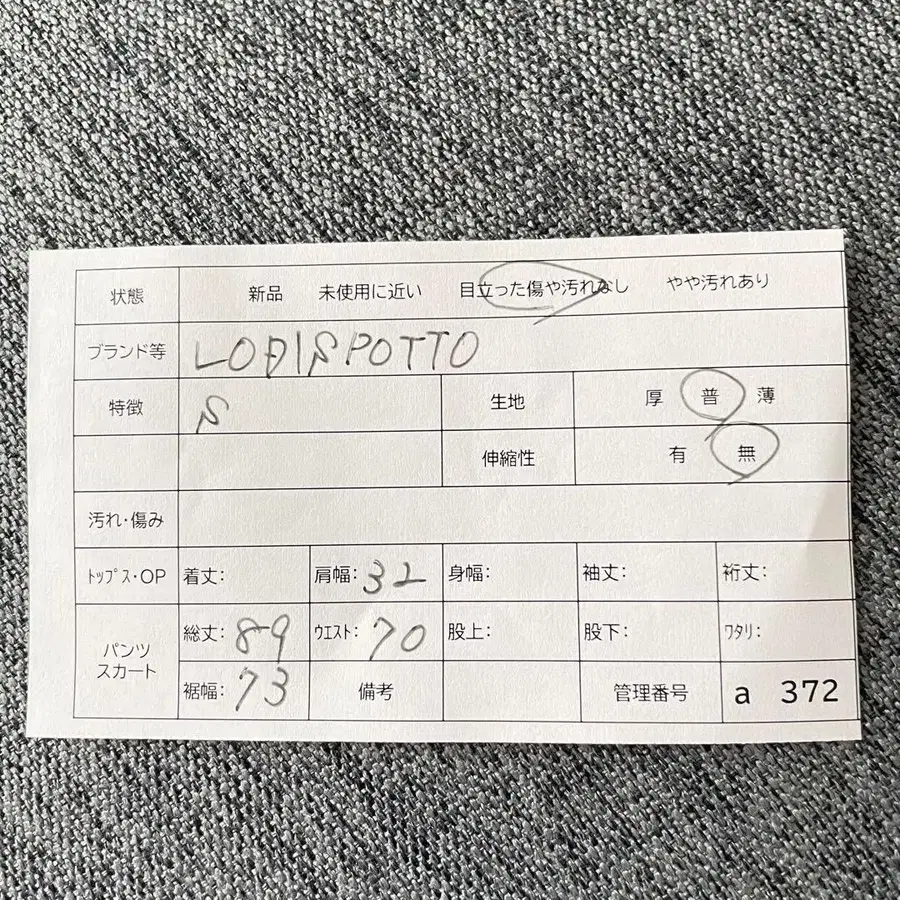 状態 新品 未使用に近い 目立った傷や汚れなし やや汚れあり
ブランド等 LODISPOTTO
特徴 S 生地 厚 普 薄
伸縮性 有 無
汚れ・傷み
ﾄｯﾌﾟｽ・OP 着丈: 肩幅: 32 身幅: 袖丈: 裄丈:
パンツ スカート 総丈: 89 ｳｴｽﾄ: 70 股上: 股下: ﾜﾀﾘ:
裾幅: 73 備考 管理番号 a 372